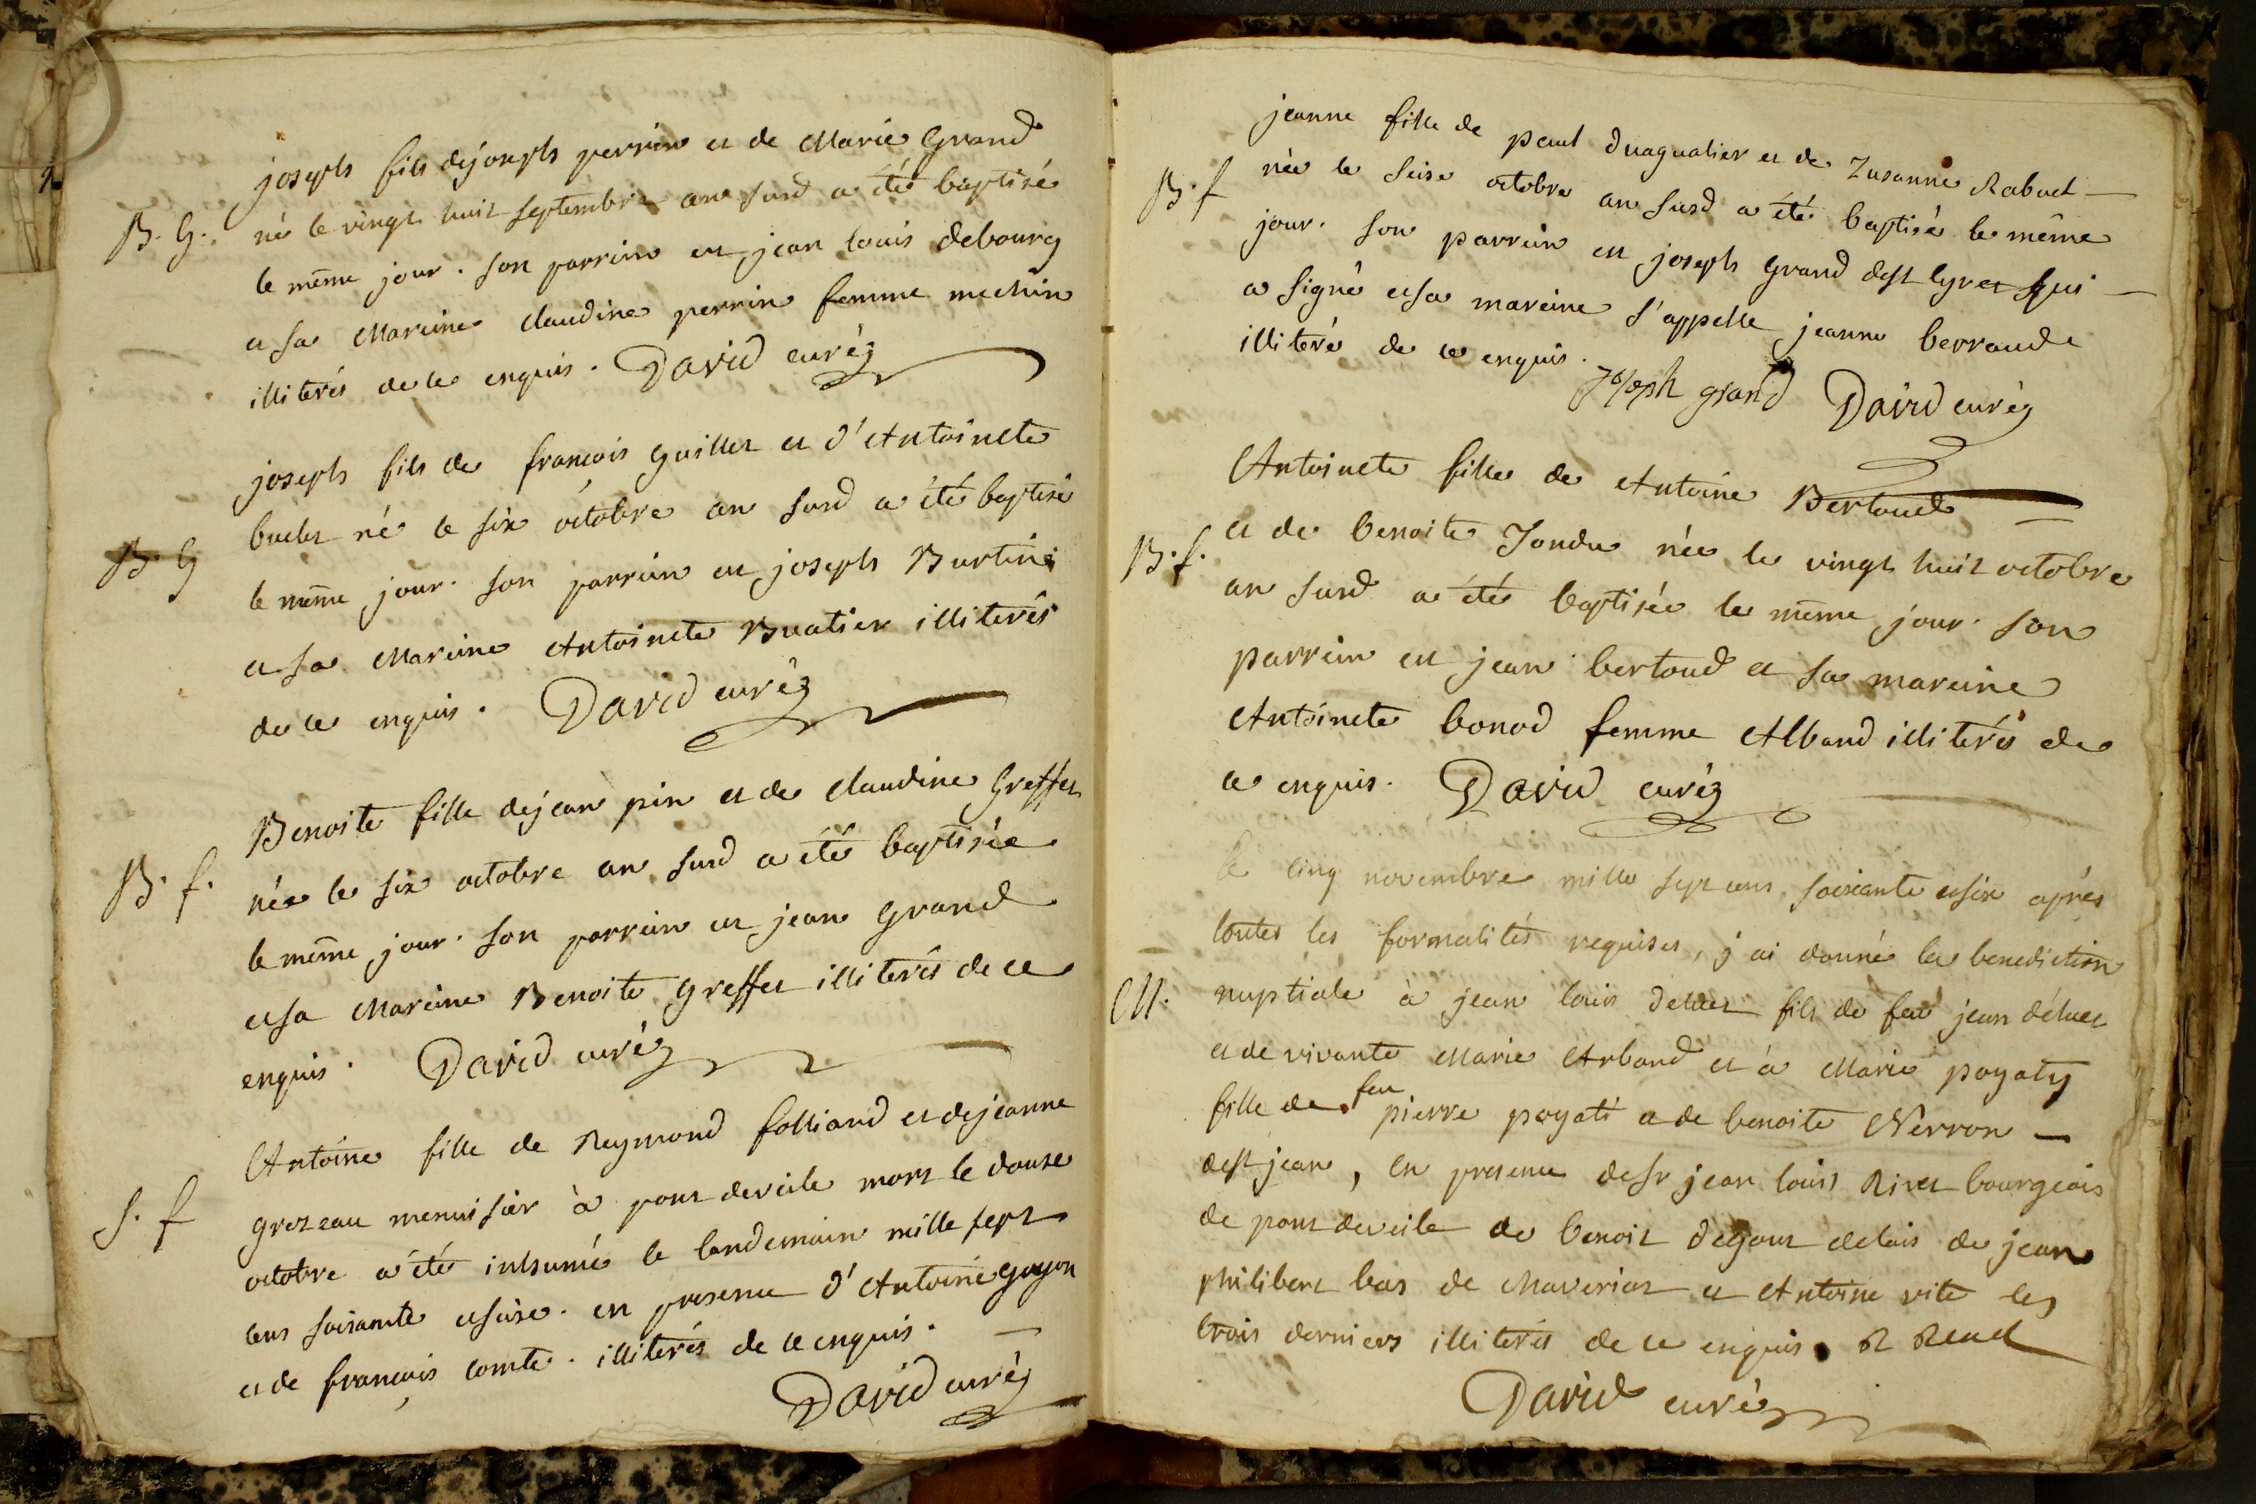 joseph fils de joseph perrin et de Marie Grand
B. G. né le vingt huit septembre an susd a été baptisé
le même jour. son parrein est jean louis debourg
et sa Mareine claudine perrin femme mechin
illiterés de ce enquis. David curé
joseph fils de françois guillet et d'Antoinete
B. G buclet né le six octobre an susd a été baptisé
le même jour. son parrein est joseph Burtin
et sa Mareine Antoinete Buatier illiterés
de ce enquis. David curé
Benoite fille de jean pin et de claudine Greffet
B. f. née le six octobre an susd a été baptisée
le même jour. son parrein est jean grand
et sa Mareine Benoite greffet illiterés de ce
enquis. David curé
Antoine fille de Reymond folliard et de jeanne
S. f grozeau menuisier à pont de veile mort le douze
octobre a été inhumé le lendemain mille sept
cens soixante et six. en presence d'Antoine guyon
et de françois comte. illiterés de ce enquis.
David curé
jeanne fille de paul duaqualier et de Zusanne Rabuel
B. f née le seize octobre an susd a été baptisée le même
jour. son parrein est joseph grand de st cyr et qui
a signé et sa mareine s'appelle jeanne berraude
illiterée de ce enquis.
Joseph grand David curé
Antoinete fille de Antoine Bertoud
B. f. et de benoite Jondu née le vingt huit octobre
an susd a été baptisée le même jour. son
parrein est jean bertoud et sa mareine
Antoinete bonod femme Alband illiterés de
ce enquis. David curé
le cinq novembre mille sept cens soixante et six après
toutes les formalités requises, j'ai donné la benediction
M. nuptiale à jean louis deluet fils de feu jean déluet
et de vivante Marie Arband et à Marie poyaty
fille de feu pierre poyati et de benoite Nerron
de st jean, en presence de sr jean louis Rivet bourgeois
de pont de veile de benoit degout delais de jean
philibert bas de Maveriat et Antoine vite les
trois derniers illiterés de ce enquis.
David curé